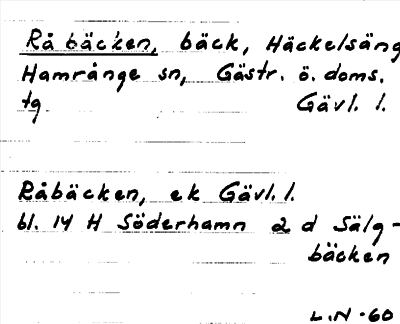 Råbäcken, bäck, Häckelsäng
Hamrånge sn, Gästr. ö. doms.
tg Gävl. l.
Råbäcken, ek Gävl. l.
bl. 14 H Söderhamn 2 d Sälg-
bäcken
L.N -60